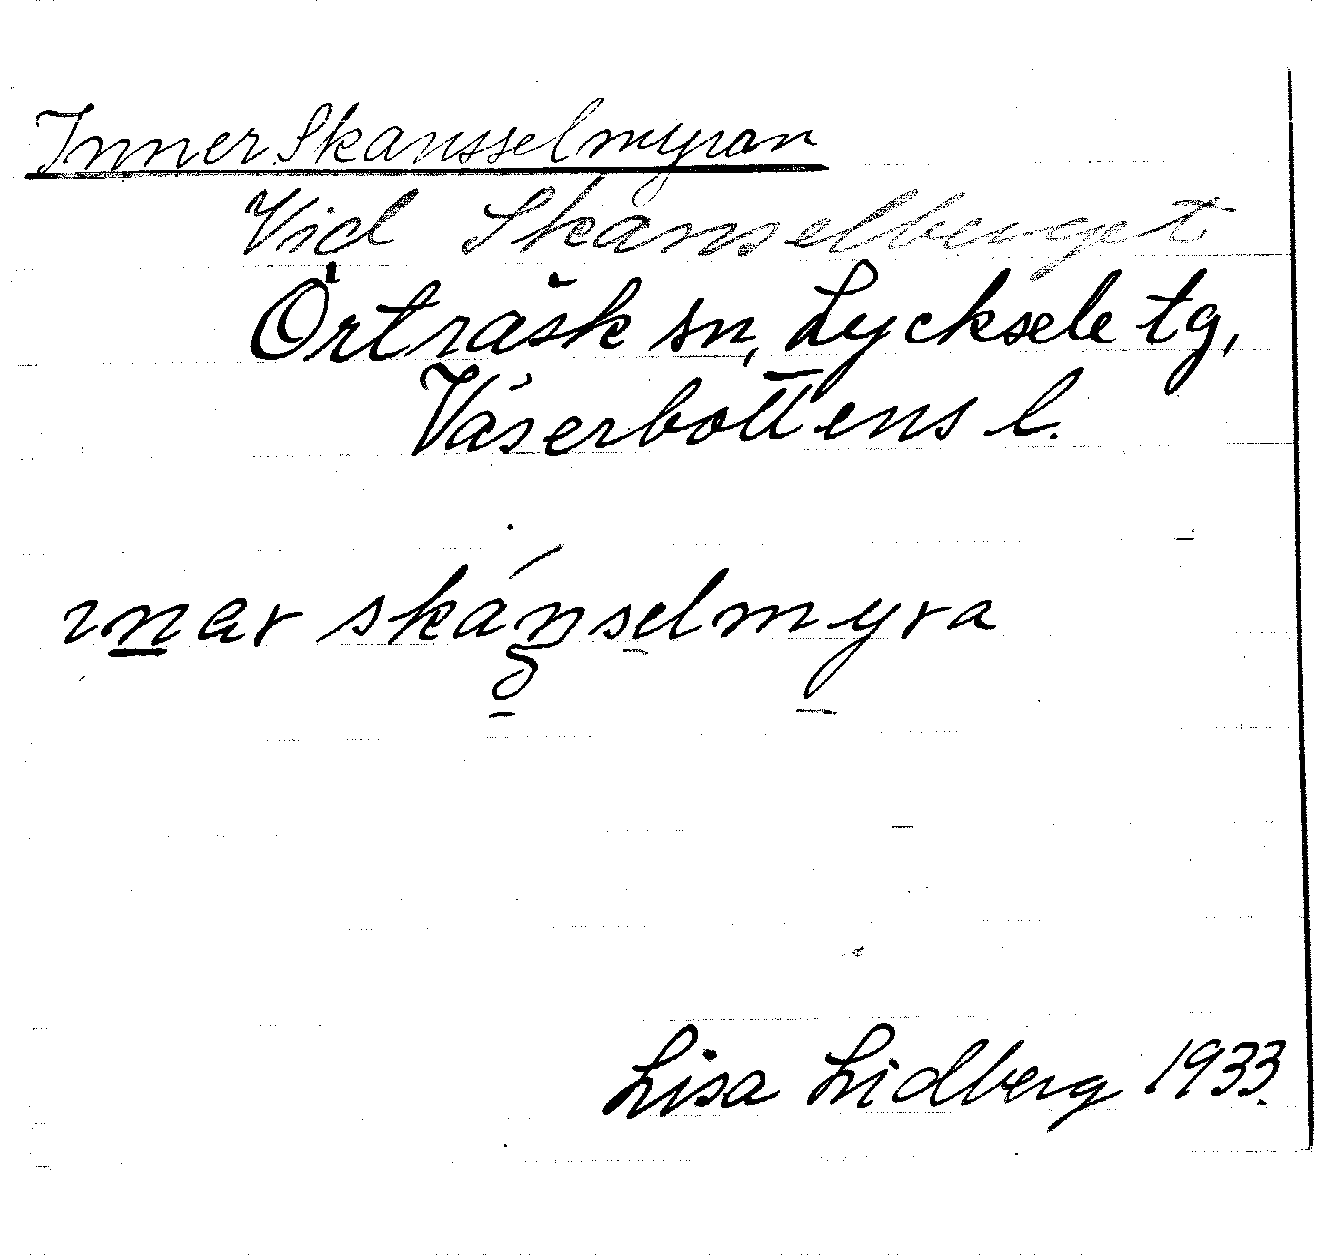 Inner Skansselmyran
Vid Skånselberget
Örträsk sn, Lycksele tg,
Väserbottens l.
ınar skánselmyra
Lisa Lidberg 1933.